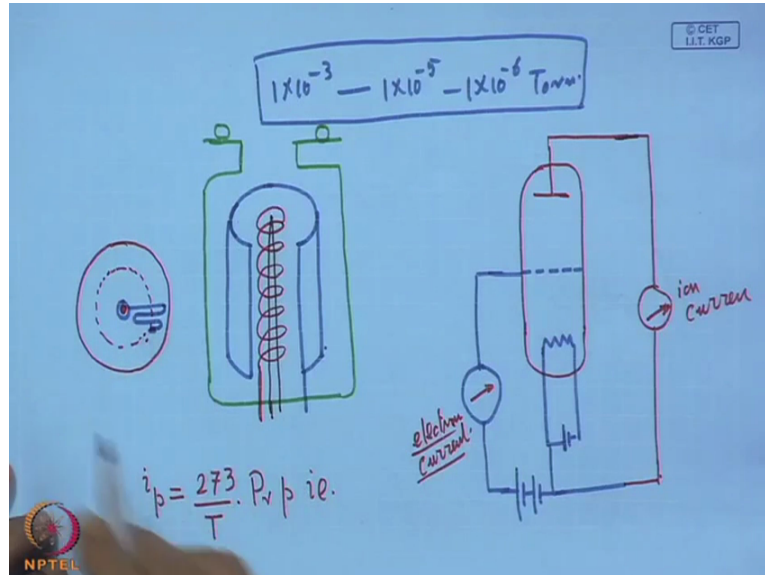 © CET
I.I.T. KGP
1×10⁻³ — 1×10⁻⁵ – 1×10⁻⁶ Torr.
ion
curren
electron
current.
iₚ = 273/T . Pᵥ p ie.
NPTEL